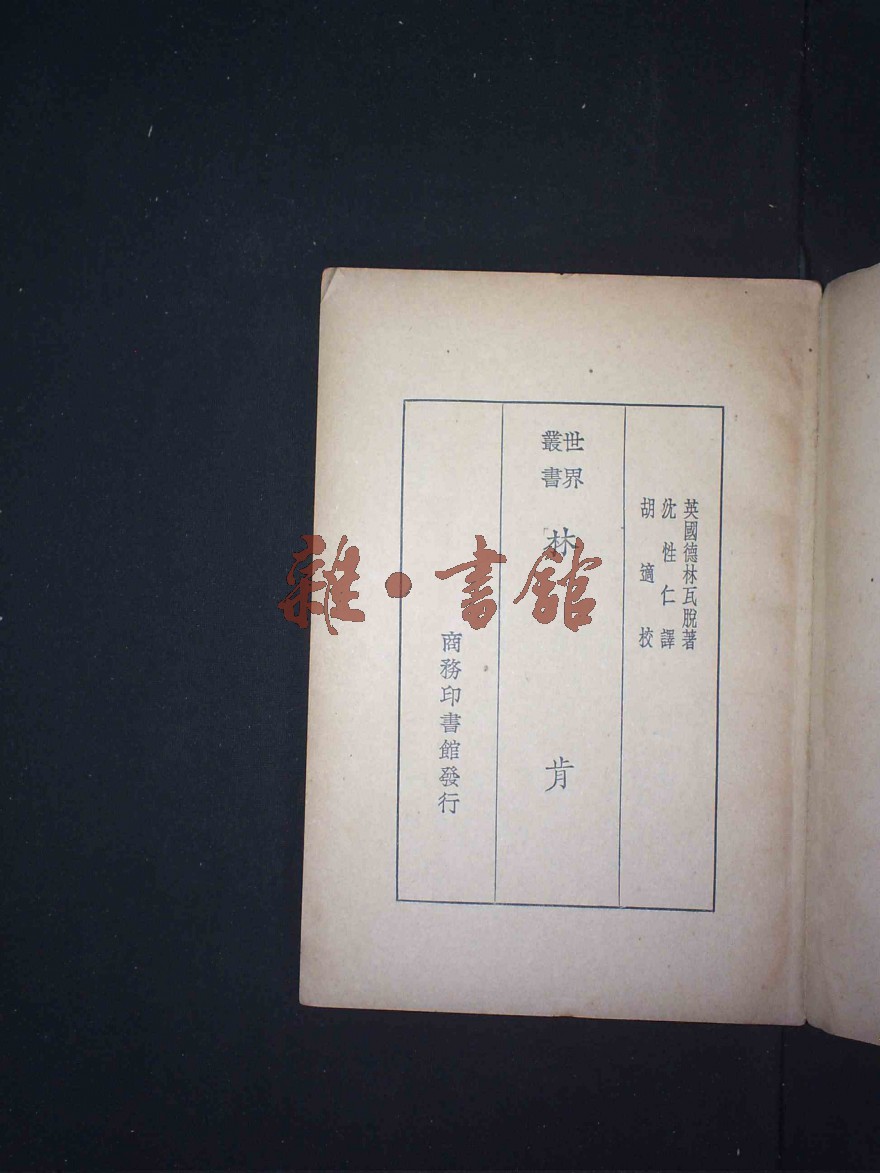 英國德林瓦脫著
沈性仁譯
胡適校
世界
叢書
林肯
商務印書館發行
雜·書館